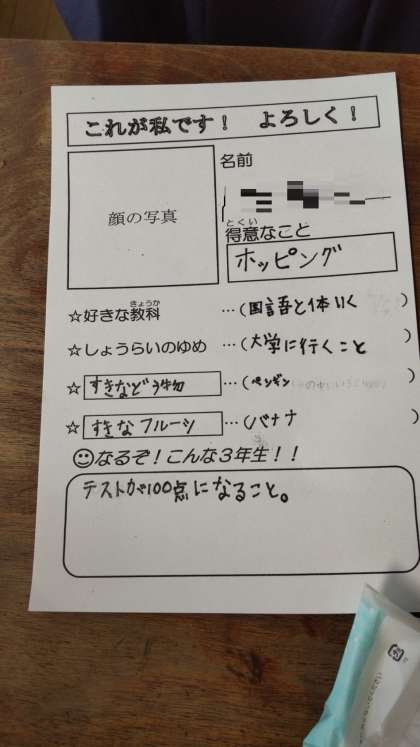 これが私です！　よろしく！
顔の写真
名前
とくい
得意なこと
ホッピング
きょうか
☆好きな教科 …（国語と体いく）
☆しょうらいのゆめ …（大学に行くこと）
☆すきなどう物 …（ペンギン）
☆すきなフルーツ …（バナナ）
なるぞ！こんな３年生！！
テストが100点になること。